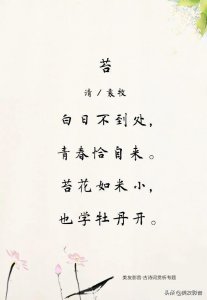 苔
清／袁枚
白日不到处，
青春恰自来。
苔花如米小，
也学牡丹开。
美友影音·古诗词赏析专题